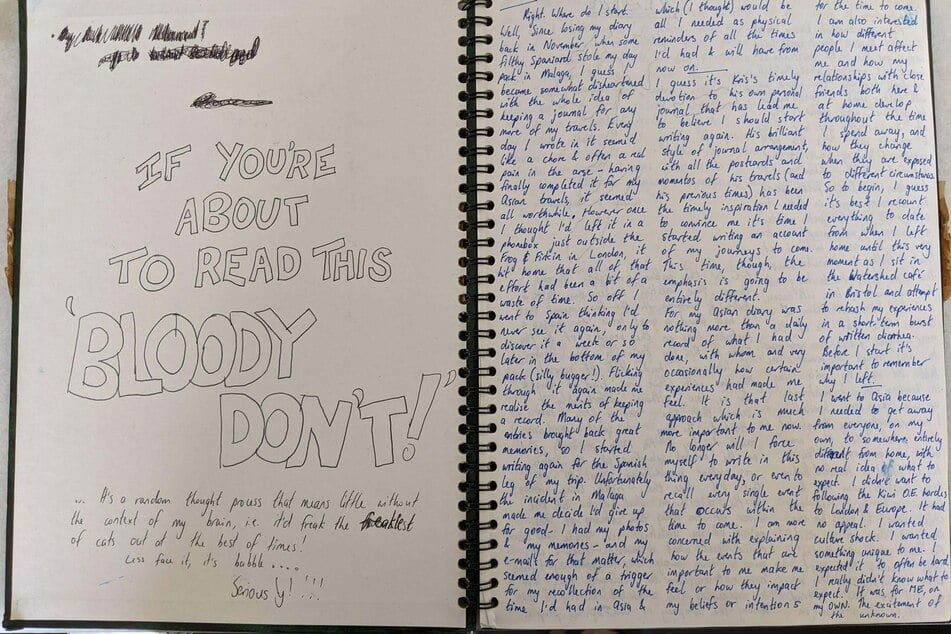 IF YOU'RE
ABOUT
TO READ THIS
'BLOODY
DON'T!'
.. It's a random thought process that means little without
the context of my brain, i.e. it'd freak the freakiest
of cats out at the best of times!
Less face it, it's babble ....
Seriously!!!!
Right. Where do I start.
Well, since losing my diary
back in November, when some
filthy Spaniard stole my day
pack in Malaga, I guess I
became somewhat disheartened
with the whole idea of
keeping a journal for any
more of my travels. Every
day I wrote in it seemed
like a chore & often a real
pain in the arse - having
finally completed it for my
Asian travels, it seemed
all worthwhile. However once
I thought I'd left it in a
phonebox just outside the
Frog & Firkin in London, it
hit home that all of that
effort had been a bit of a
waste of time. So off I
went to Spain thinking I'd
never see it again, only to
discover it a week or so
later in the bottom of my
pack (silly bugger!). Flicking
through it again made me
realise the merits of keeping
a record. Many of the
entries brought back great
memories, so I started
writing again for the Spanish
leg of my trip. Unfortunately
the incident in Malaga
made me decide I'd give up
for good - I had my photos
& my memories - and my
e-mails for that matter, which
seemed enough of a trigger
for my recollection of the
time I'd had in Asia &
which (I thought) would be
all I needed as physical
reminders of all the times
I'd had & will have from
now on.
I guess it's Kris's timely
devotion to his own personal
journal that has lead me
to believe I should start
writing again. His brilliant
style of journal arrangement,
with all the postcards and
momentos of his travels (and
his previous times) has been
the timely inspiration I needed
to convince me it's time I
started writing an account
of my journeys to come.
This time, though, the
emphasis is going to be
entirely different.
For my Asian diary was
nothing more than a daily
record of what I had
done, with whom and very
occasionally how certain
experiences had made me
feel. It is that last
approach which is much
more important to me now.
No longer will I force
myself to write in this
thing everyday, or even to
recall every single event
that occurs within the
time to come. I am more
concerned with explaining
how the events that are
important to me make me
feel or how they impact
my beliefs or intentions
for the time to come.
I am also interested
in how different
people I meet affect
me and how my
relationships with close
friends both here &
at home develop
throughout the time
I spend away, and
how they change
when they are exposed
to different circumstances.
So to begin, I guess
it's best I recount
everything to date
from when I left
home until this very
moment as I sit in
the Watershed café
in Bristol and attempt
to rehash my experiences
in a short-term burst
of written diorrhea.
Before I start it's
important to remember
why I left.
I went to Asia because
I needed to get away
from everyone, on my
own, to somewhere entirely
different from home, with
no real idea of what to
expect. I didn't want to
following the Kiwi O.E. horde
to London & Europe. It had
no appeal. I wanted
culture shock. I wanted
something unique to me. I
expected it to often be hard.
I really didn't know what to
expect. It was for ME, on
my OWN. The excitement of
the unknown.